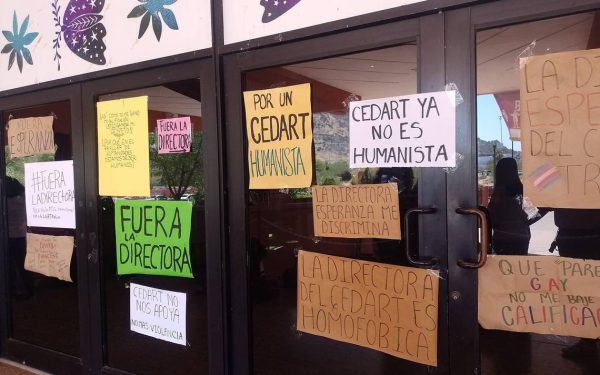 ESPERANZA
#FUERA
LADIRECTORA
FUERA LA
DIRECTORA
FUERA
LA
DIRECTORA
CEDART NO
NOS APOYA
NO MAS VIOLENCIA
POR UN
CEDART
HUMANISTA
CEDART YA
NO ES
HUMANISTA
LA DIRECTORA
ESPERANZA ME
DISCRIMINA
LA DIRECTORA
DEL CEDART ES
HOMOFOBICA
LA DI
ESPE
DEL C
TR
QUE PARE
GAY
NO ME BAJE
CALIFICA